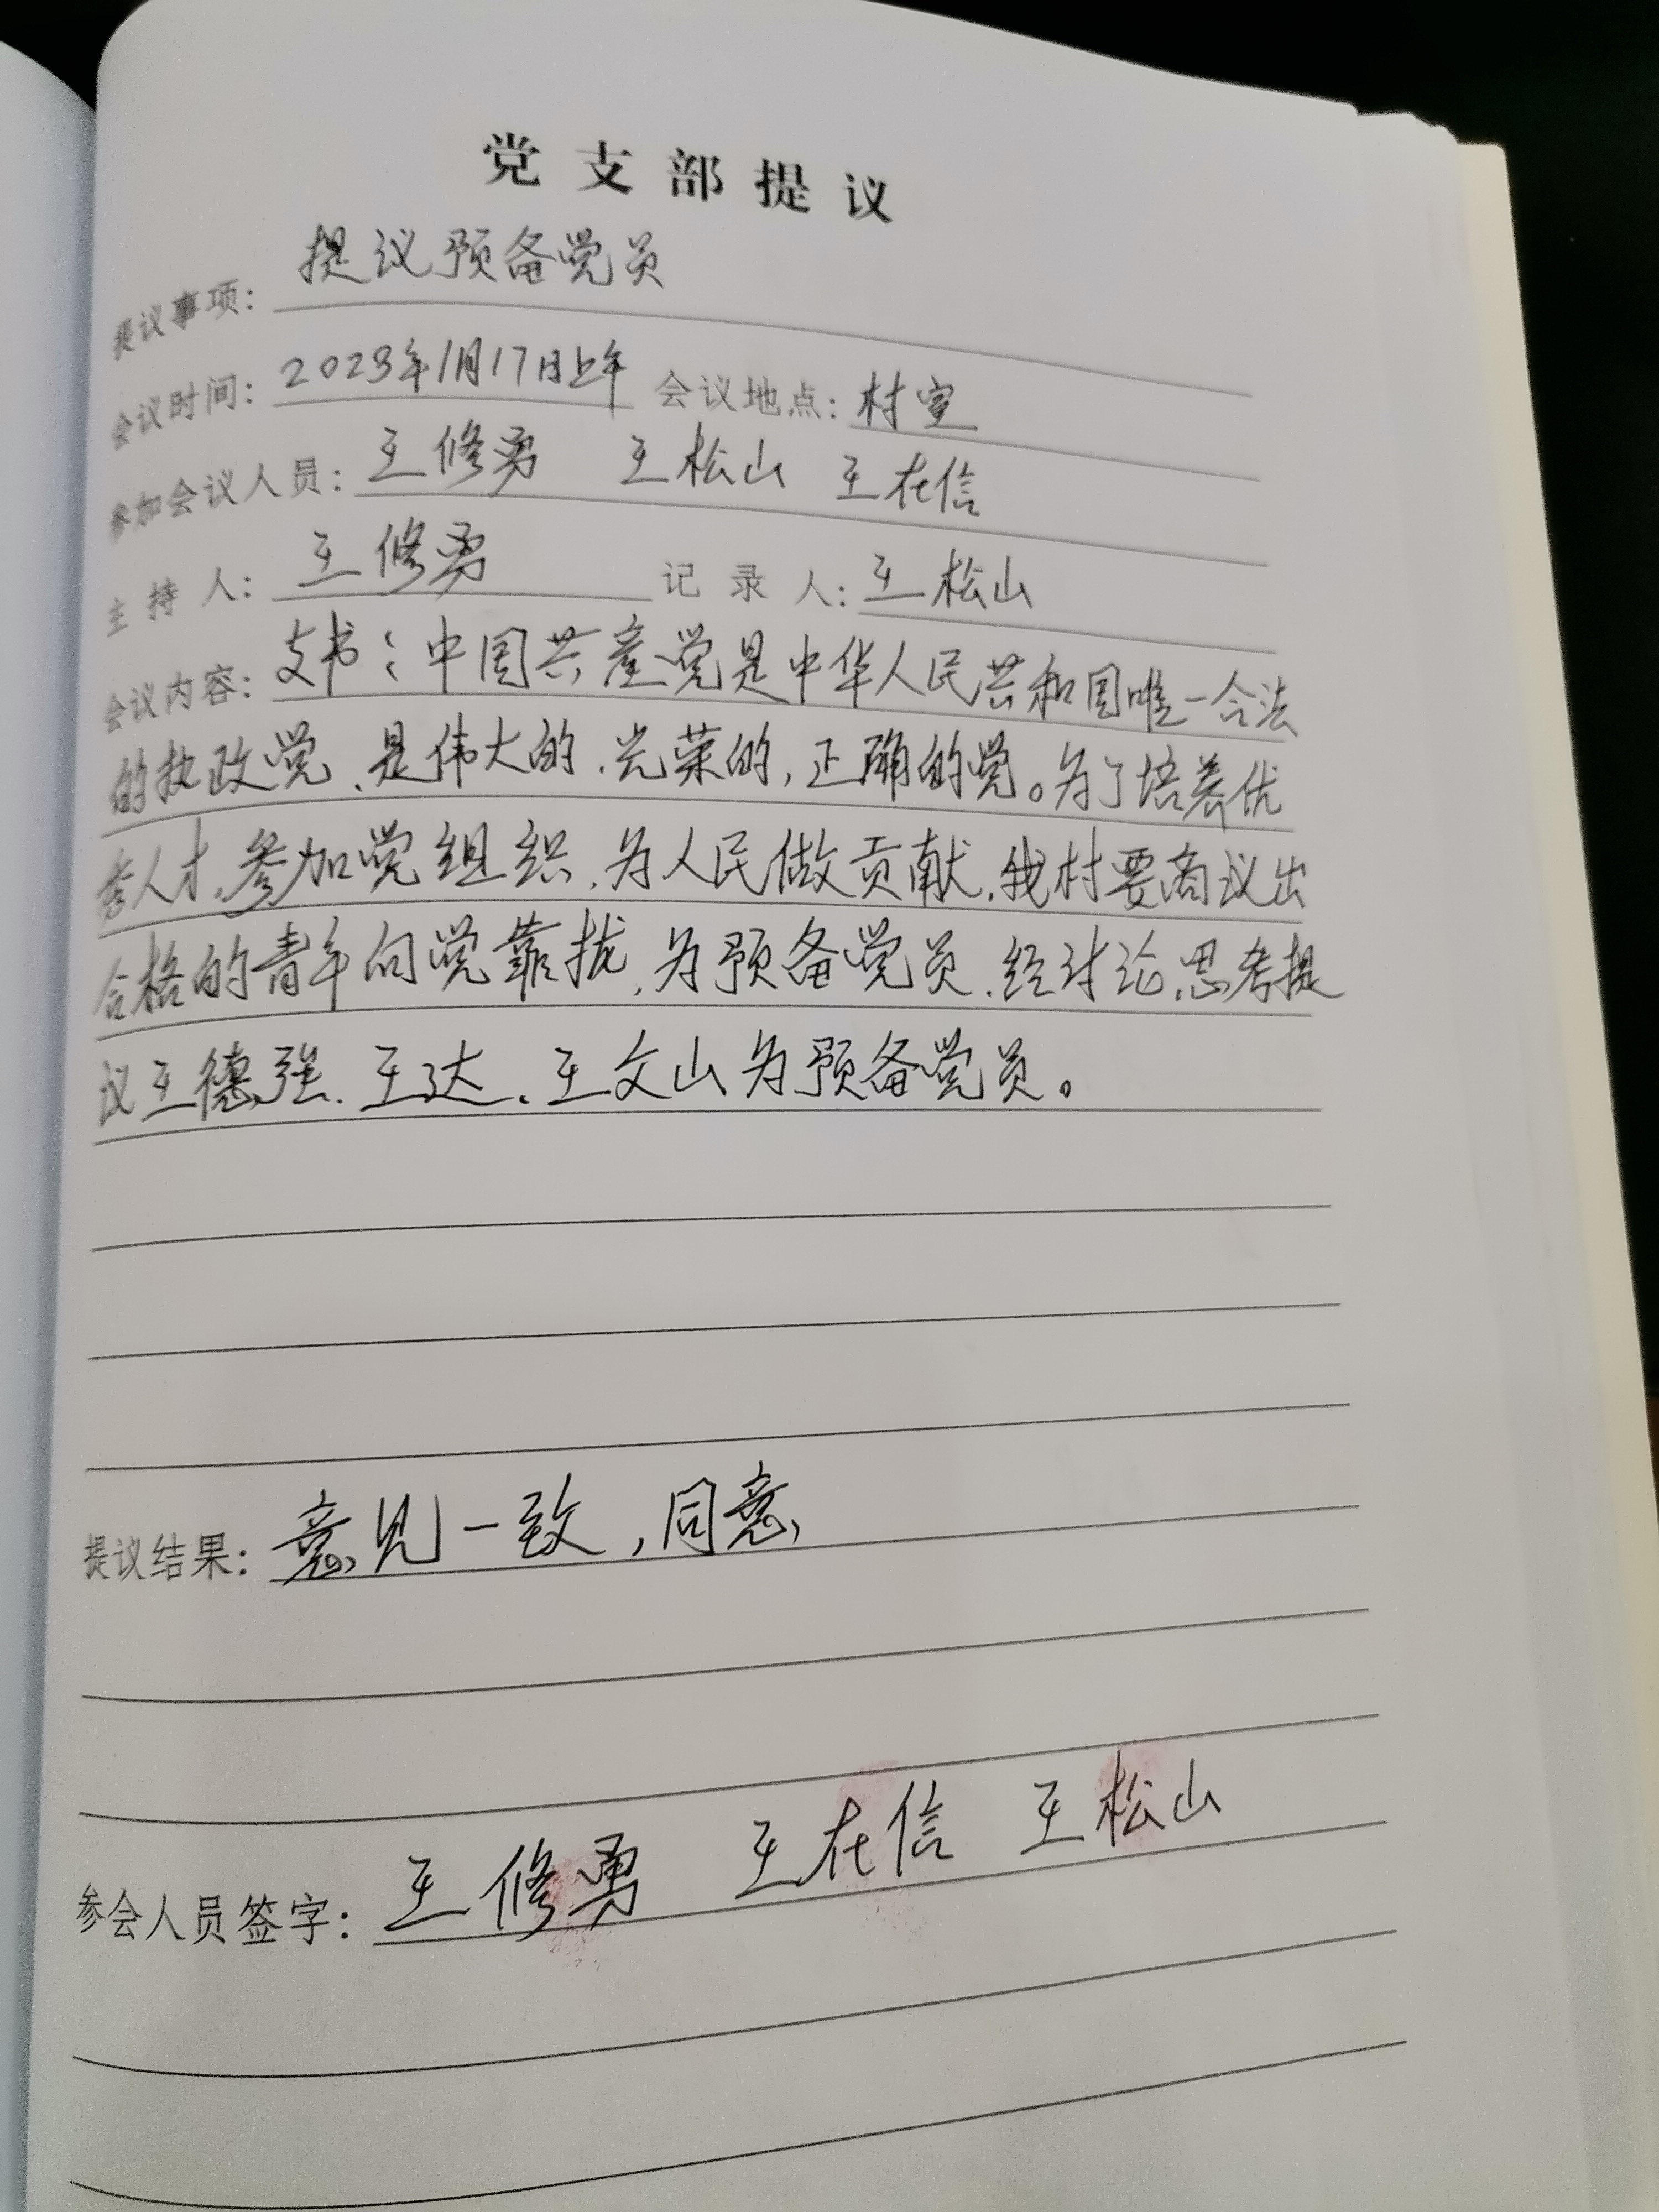 党支部提议
提议事项：提议预备党员
会议时间：2023年1月17日上午 会议地点：村室
参加会议人员：王修勇 王松山 王在信
主持人：王修勇 记录人：王松山
会议内容：支书：中国共产党是中华人民共和国唯一合法
的执政党、是伟大的、光荣的，正确的党。为了培养优
秀人才，参加党组织、为人民做贡献，我村要商议出
合格的青年向党靠拢，为预备党员、经讨论、思考提
议王德强、王达、王文山为预备党员。
提议结果：意见一致，同意
参会人员签字：王修勇 王在信 王松山